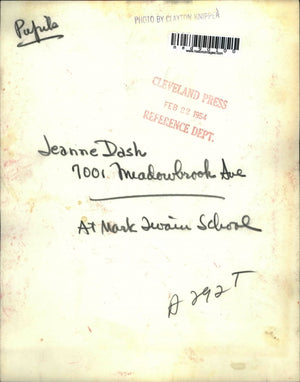 Pupils
PHOTO BY CLAYTON KNIPPER
CLEVELAND PRESS
FEB 22 1954
REFERENCE DEPT.
Jeanne Dash
7001 Meadowbrook Ave
At Mark Twain School
A 292T